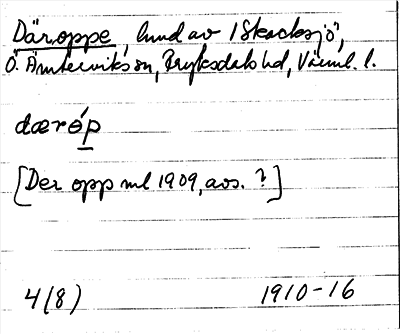 Däroppe, hmd av 1 Skacksjö,
Ö. Ämterviks sn, Fryksdals hd, Värml. l.
dæróp
[Der opp ml 1909, avs. ?]
4(8) 1910-16